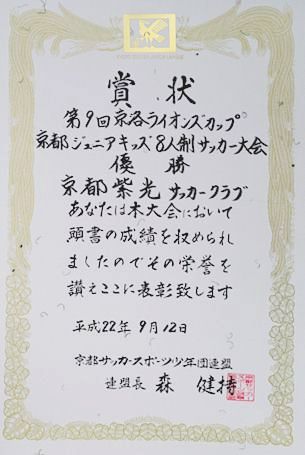 賞状
第9回京洛ライオンズカップ
京都ジュニアキッズ8人制サッカー大会
優勝
京都紫光サッカークラブ
あなたは本大会において
頭書の成績を収められ
ましたのでその栄誉を
讃えここに表彰致します
平成22年9月12日
京都サッカースポーツ少年団連盟
連盟長 森 健持